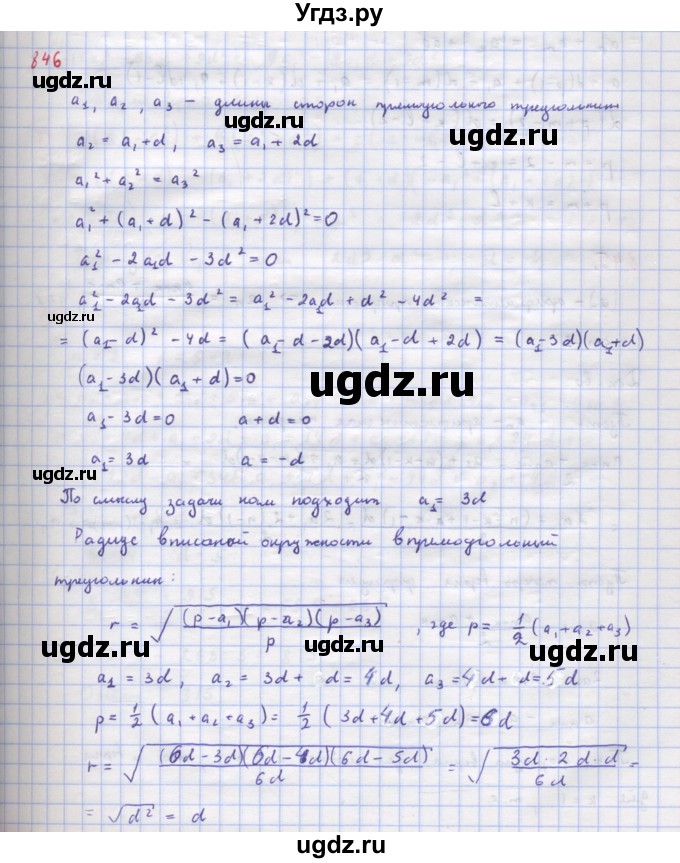 Угдз.ру
846
ugdz.ru
a₁, a₂, a₃ – длины сторон прямоугольного треугольника
ugdz.ru ugdz.ru
a₂ = a₁+d, a₃ = a₁ + 2d
a₁² + a₂² = a₃²
a₁² + (a₁ + d)² − (a₁ + 2d)² = 0
a₁² − 2a₁d − 3d² = 0
a₁² − 2a₁d − 3d² = a₁² − 2a₁d + d² − 4d² =
ugdz.ru
= (a₁ − d)² − 4d = (a₁ − d − 2d)(a₁ − d + 2d) = (a₁ − 3d)(a₁ + d)
(a₁ − 3d)(a₁ + d) = 0
ugdz.ru
a₁ − 3d = 0 a + d = 0
a₁ = 3d a = −d
ugdz.ru
По смыслу задачи нам подходит a₁ = 3d
Радиус вписаной окружности в прямоугольный
треугольник:
r = √((p − a₁)(p − a₂)(p − a₃) / p), где p = 1/2 (a₁ + a₂ + a₃)
ugdz.ru ugdz.ru ugdz.ru
a₁ = 3d, a₂ = 3d + d = 4d, a₃ = 4d + d = 5d
p = 1/2 (a₁ + a₂ + a₃) = 1/2 (3d + 4d + 5d) = 6d
r = √((6d − 3d)(6d − 4d)(6d − 5d) / 6d) = √(3d · 2d · d / 6d) =
= √d² = d
ugdz.ru
ugdz.ru